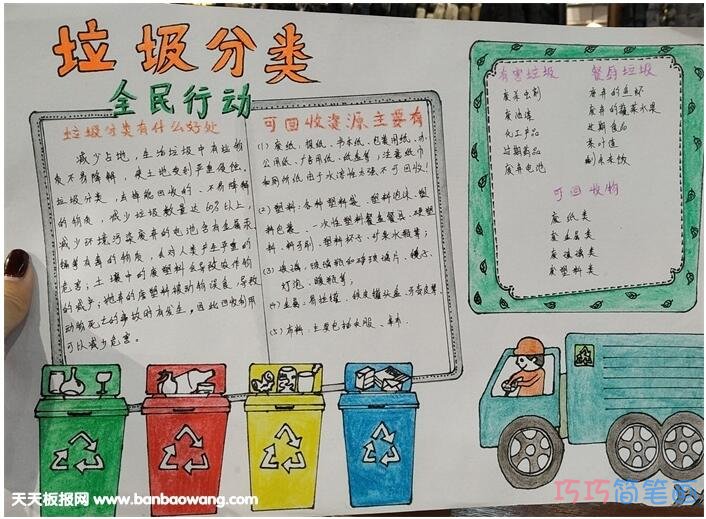 垃圾分类
全民行动
垃圾分类有什么好处
减少占地，生活垃圾中有些物
质不易降解，使土地受到严重侵蚀。
垃圾分类，去掉能回收的、不易降解
的物质，减少垃圾数量达60%以上。
减少环境污染废弃的电池含有金属汞、
镉等有毒的物质，会对人类产生严重的
危害；土壤中的废塑料会导致农作物
的减产；抛弃的废塑料被动物误食，导致
动物死亡的事故时有发生，因此回收利用
可以减少危害。
可回收资源主要有
(1) 废纸：报纸、书本纸、包装用纸、办
公用纸、广告用纸、纸盒等；注意纸巾
和厕所纸由于水溶性太强不可回收！
(2) 塑料：各种塑料袋、塑料泡沫、塑
料包装、一次性塑料餐盒餐具、硬塑
料、塑料杯子、矿泉水瓶等；
(3) 玻璃：玻璃瓶和碎玻璃片、镜子、
灯泡、暖瓶等；
(4) 金属：易拉罐、铁皮罐头盒、牙膏皮等
(5) 布料：主要包括衣服、
有害垃圾
废杀虫剂
废油漆
化工产品
过期药品
废弃电池
餐厨垃圾
废弃的
废弃的蔬菜水果
过期食品
茶叶渣
剩菜剩饭
可回收物
废纸类
废金属类
废玻璃类
废塑料类
天天板报网 www.banbaowang.com
巧巧简笔画